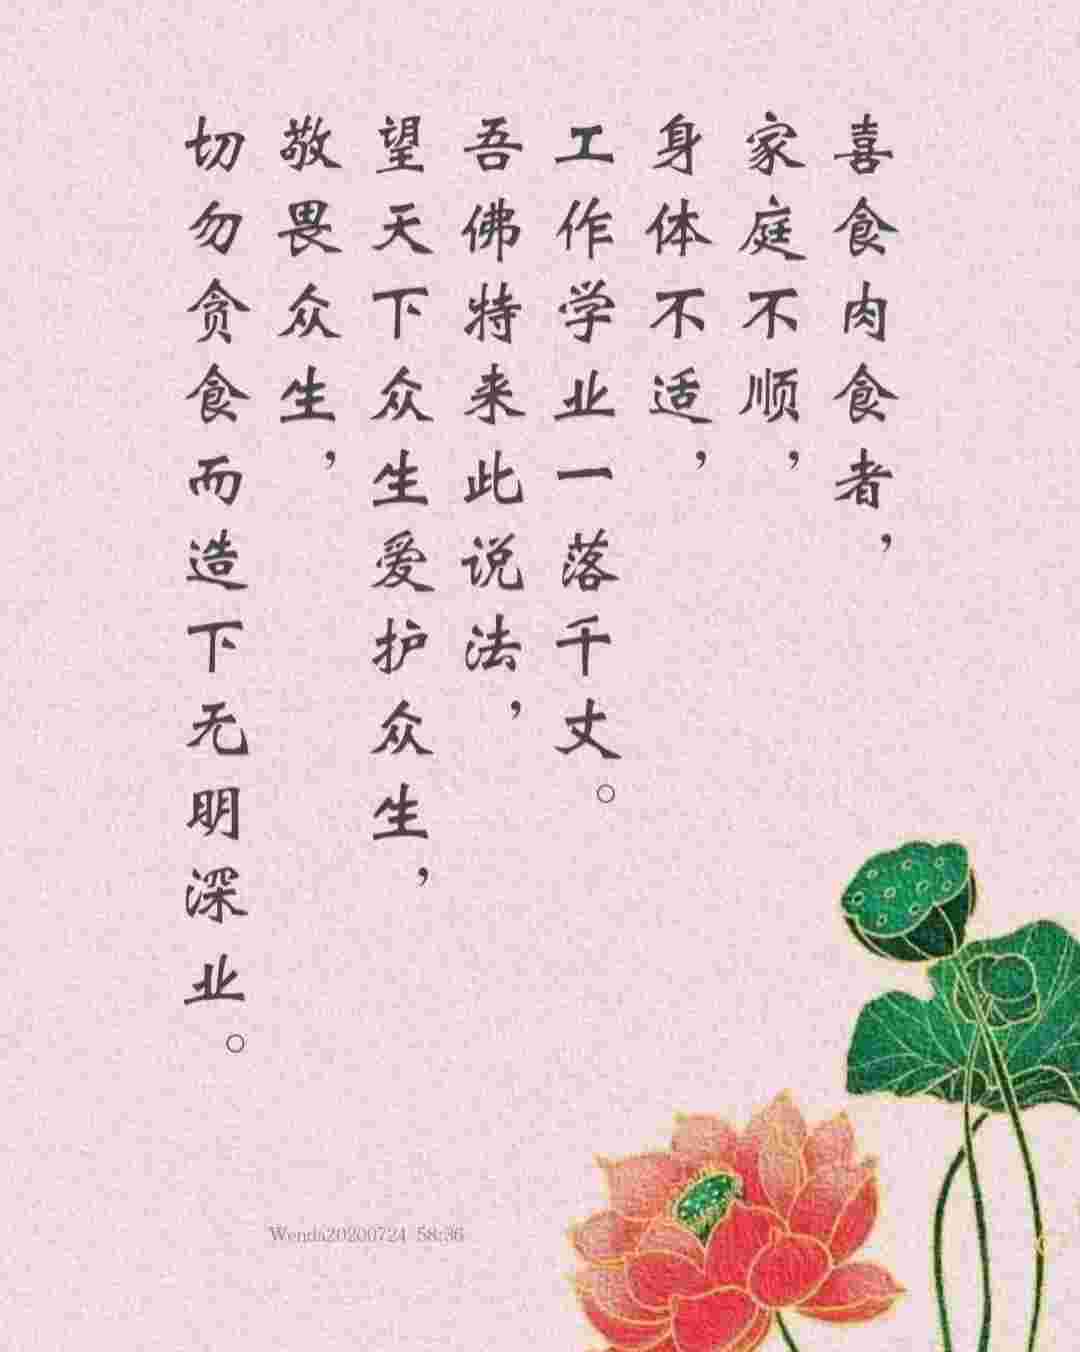 喜食肉食者，
家庭不顺，
身体不适，
工作学业一落千丈。
吾佛特来此说法，
望天下众生爱护众生，
敬畏众生，
切勿贪食而造下无明深业。
Wenda20200724 58:36